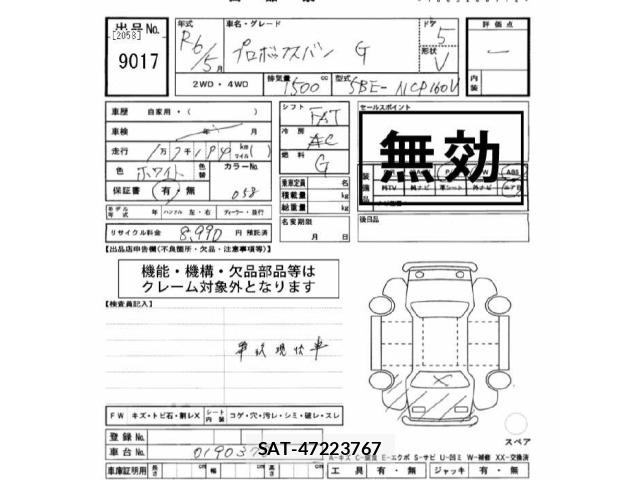 出品No.
[2058]
9017
年式
R6/5月
車名・グレード
プロボックスバン G
ドア
5
形状
V
評価点
内装
2WD・4WD
排気量
1500 cc
型式
5BE-NCP160V
車歴 自家用・( )
車検 年 月
走行 1万7千199 km(マイル)
色 ホワイト 色替 カラーNo. 058
保証書 有・無
シフト FAT
冷房 AC
燃料 G
乗車定員 名
積載量 kg
総重量 kg
名変期限
月 日
セールスポイント
無効
装備品
ABS
純TV 純ナビ 革シート 外ナビ エアB
後日品
モデル年式 年 ハンドル 左・右 ディーラー・並行
リサイクル料金 8,990 円 預託済
【出品店申告欄(不良箇所・欠品・注意事項等)】
機能・機構・欠品部品等は
クレーム対象外となります
【検査員記入】
車両現状車
FW キズ・トビ石・割レX シート内装 コゲ・穴・汚レ・シミ・破レ・スレ
登録No.
車台No. 019037
SAT-47223767
スペア
A-キズ E-エクボ S-サビ U-凹ミ W-補修 XX-交換済
車庫証明用 長さ cm 幅 cm 高さ cm 工具 有・無 ジャッキ 有・無